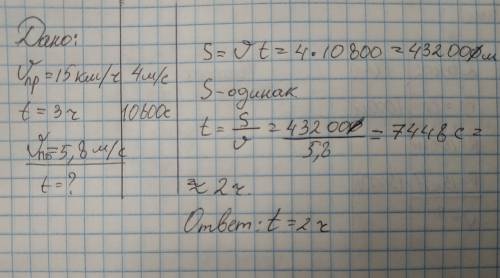 Дано:
Vпр = 15 км/ч 4 м/с
t = 3 ч 10800с
Vпб = 5,8 м/с
t = ?
S = Vt = 4 · 10800 = 432000 м
S - одинак
t = S/V = 432000/5,8 = 7448 с =
≈ 2 ч.
Ответ: t = 2 ч